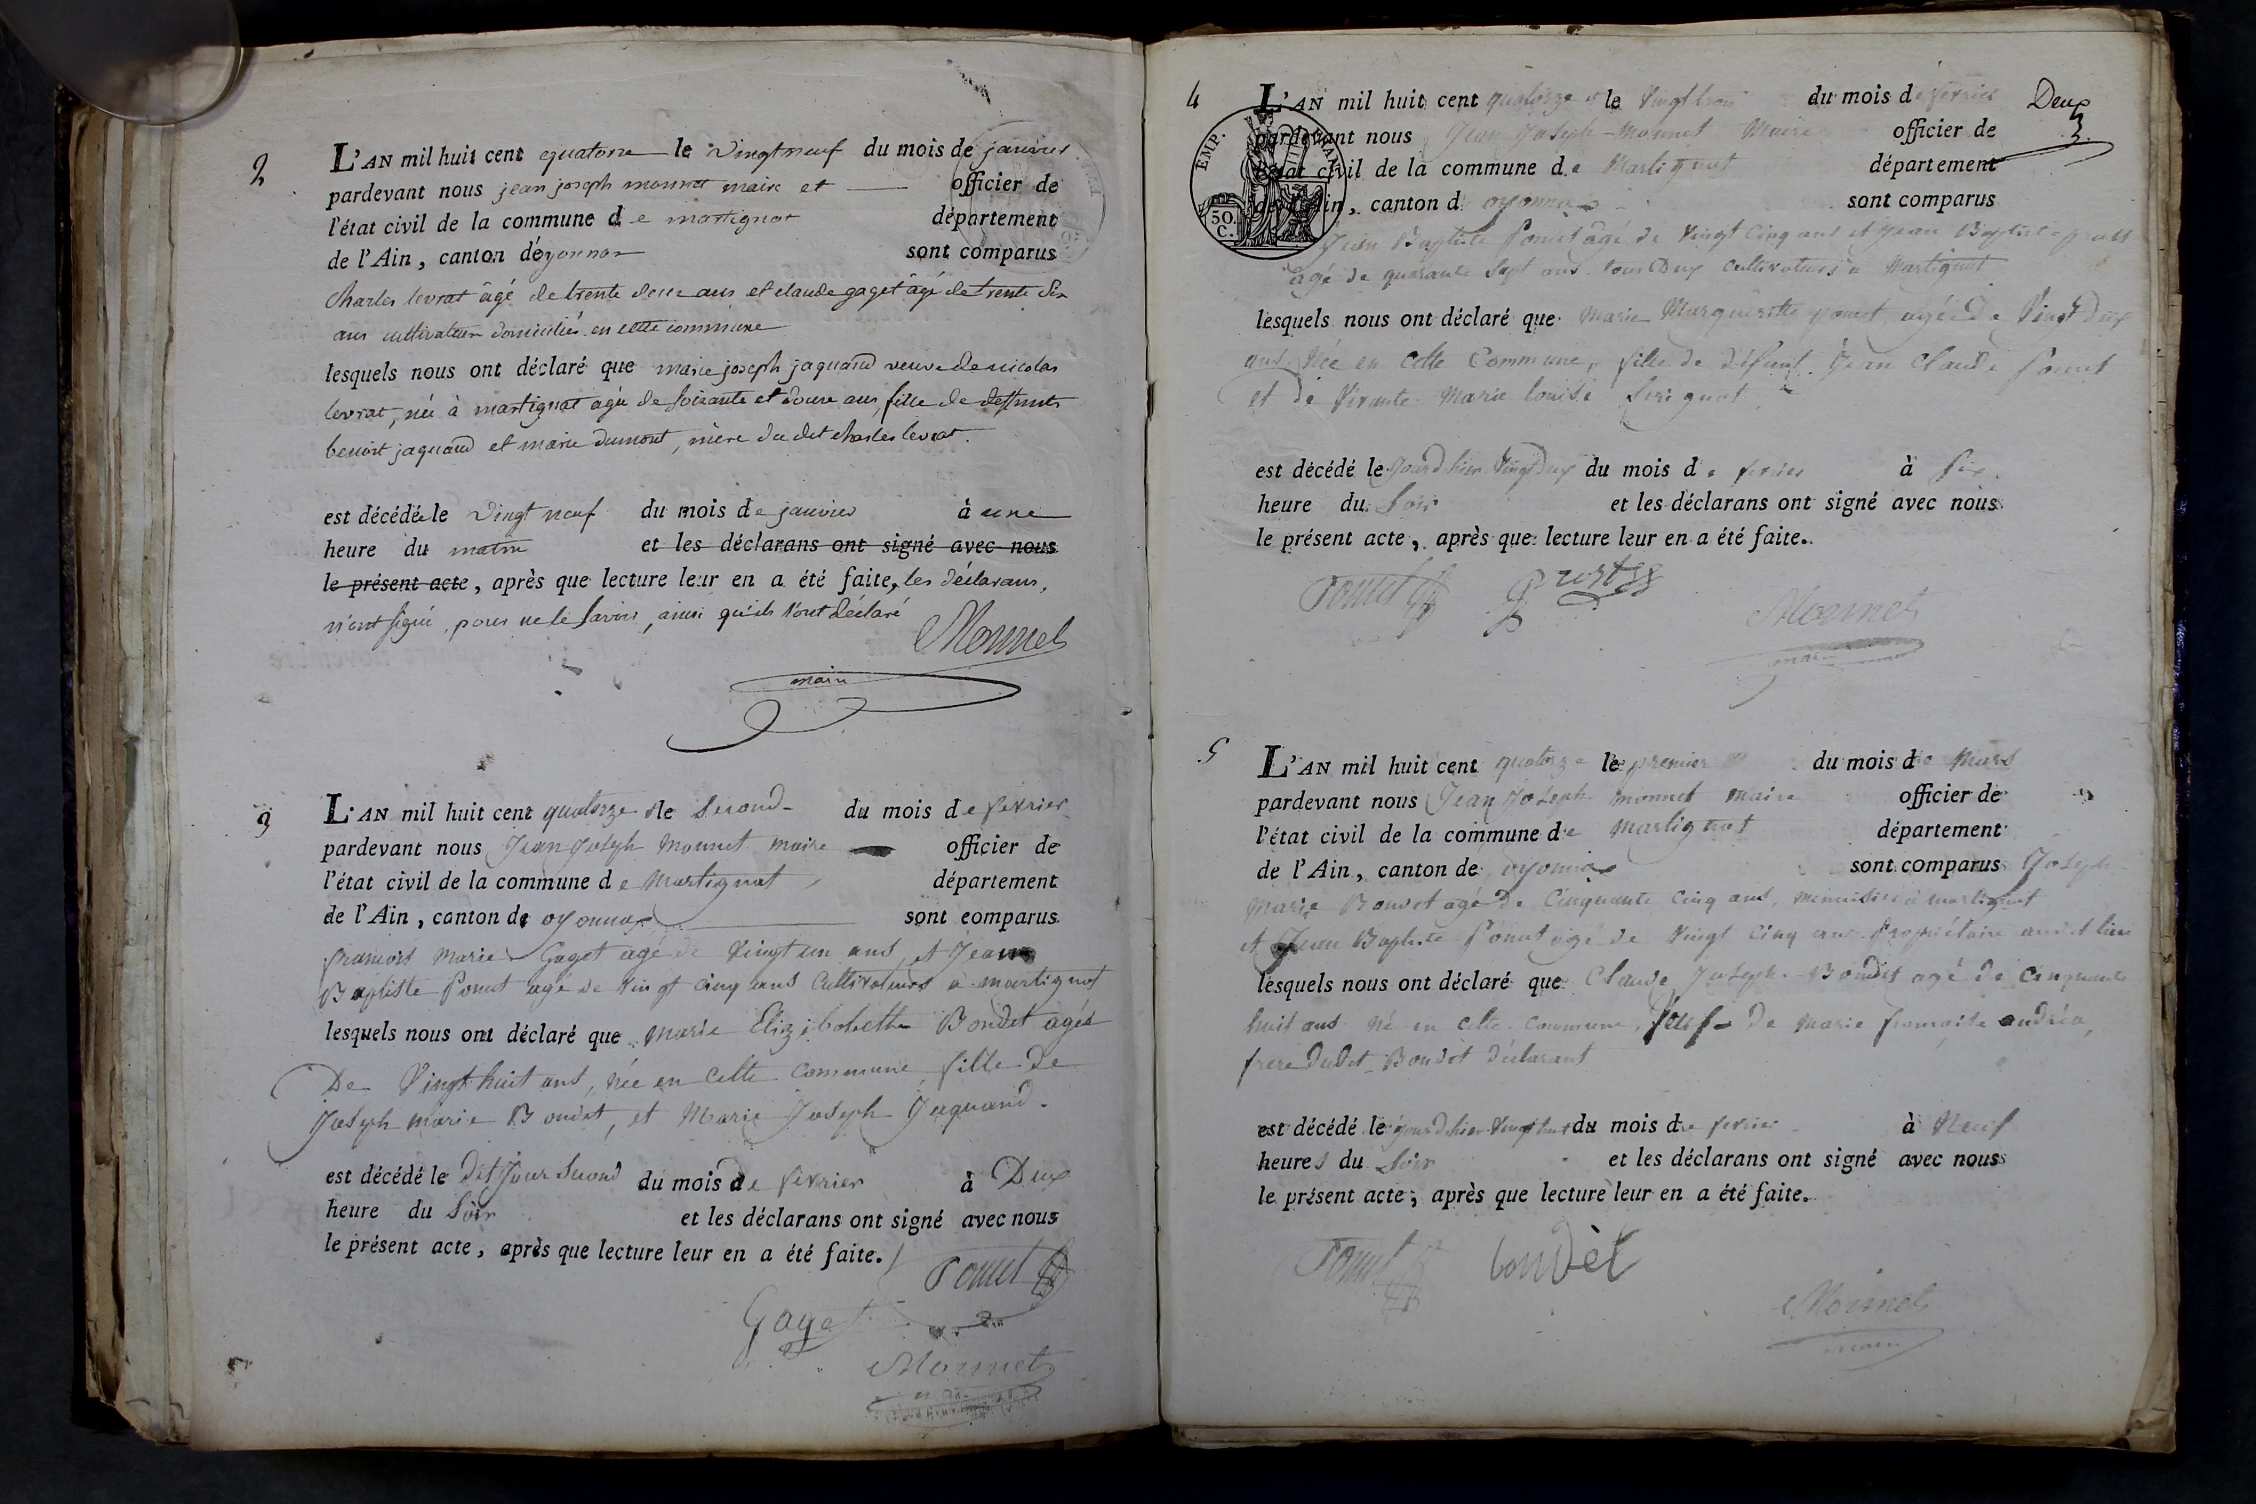 2
L'AN mil huit cent quatorze le vingt neuf du mois de janvier
pardevant nous jean joseph monnet maire et officier de
l'état civil de la commune de martignat département
de l'Ain, canton d'oyonnax sont comparus
charles levrat âgé de trente deux ans et claude gaget âgé de trente six
ans cultivateurs domiciliés en cette commune
lesquels nous ont déclaré que marie joseph jaquand veuve de nicolas
levrat, née à martignat agée de soixante et douze ans, fille de deffunts
benoit jaquand et marie dumont, mère du dit charles levrat.
est décédée le vingt neuf du mois de janvier à une
heure du matin et les déclarans ont signé avec nous
le présent acte, après que lecture leur en a été faite, les déclarans,
n'ont signé, pour ne le savoir, ainsi qu'ils l'ont déclaré
Monnet
maire
3
L'AN mil huit cent quatorze et le second du mois de fevrier
pardevant nous Jean Joseph Monnet maire officier de
l'état civil de la commune de Martignat département
de l'Ain, canton de oyonnax sont comparus
francois Marie Gaget agé de Vingt un ans, et Jean
Baptiste Ponut agé de vingt cinq ans Cultivateurs a martignat
lesquels nous ont déclaré que marie Elizabeth Bondet agée
De Vingt huit ans, née en cette commune fille de
Joseph marie Bondet, et Marie Joseph Jaquand.
est décédé le dit jour second du mois de fevrier à Deux
heure du Soir et les déclarans ont signé avec nous
le présent acte, après que lecture leur en a été faite.
Ponut
Gaget
Monnet
4
Deux
L'AN mil huit cent quatorze et le vingt trois du mois de fevrier
pardevant nous Jean Joseph Monnet Maire officier de
l'état civil de la commune de Martignat département
de l'Ain, canton d oyonnax sont comparus
EMP.
50.
C.
Jean Baptiste Ponut âgé de vingt cinq ans et Jean Baptiste
âgé de quarante sept ans tous Deux cultivateurs a Martignat
lesquels nous ont déclaré que Marie Marguerite ponut agée de Vingt Deux
ans Née en cette Commune, fille de défunt Jean Claude Ponut
et de Vivante Marie louise
est décédé le jourd'hier vingt deux du mois de fevrier à six
heure du Soir et les déclarans ont signé avec nous
le présent acte, après que lecture leur en a été faite.
Ponut
Monnet
maire
5
L'AN mil huit cent quatorze le premier du mois de Mars
pardevant nous Jean Joseph monnet maire officier de
l'état civil de la commune de Martignat département
de l'Ain, canton de oyonnax sont comparus Joseph
Marie Bondet agé de Cinquante Cinq ans, menuisier a martignat
et Jean Baptiste Ponut agé de vingt cinq ans Propriétaire audit lieu
lesquels nous ont déclaré que Claude Joseph Bondet agé de cinquante
huit ans né en cette commune, veuf de marie francoise andréa,
frere dudit Bondet déclarant
est décédé le jourd'hier vingt huit du mois de fevrier à Neuf
heures du Soir et les déclarans ont signé avec nous
le présent acte, après que lecture leur en a été faite.
Ponut
bondèt
Monnet
maire